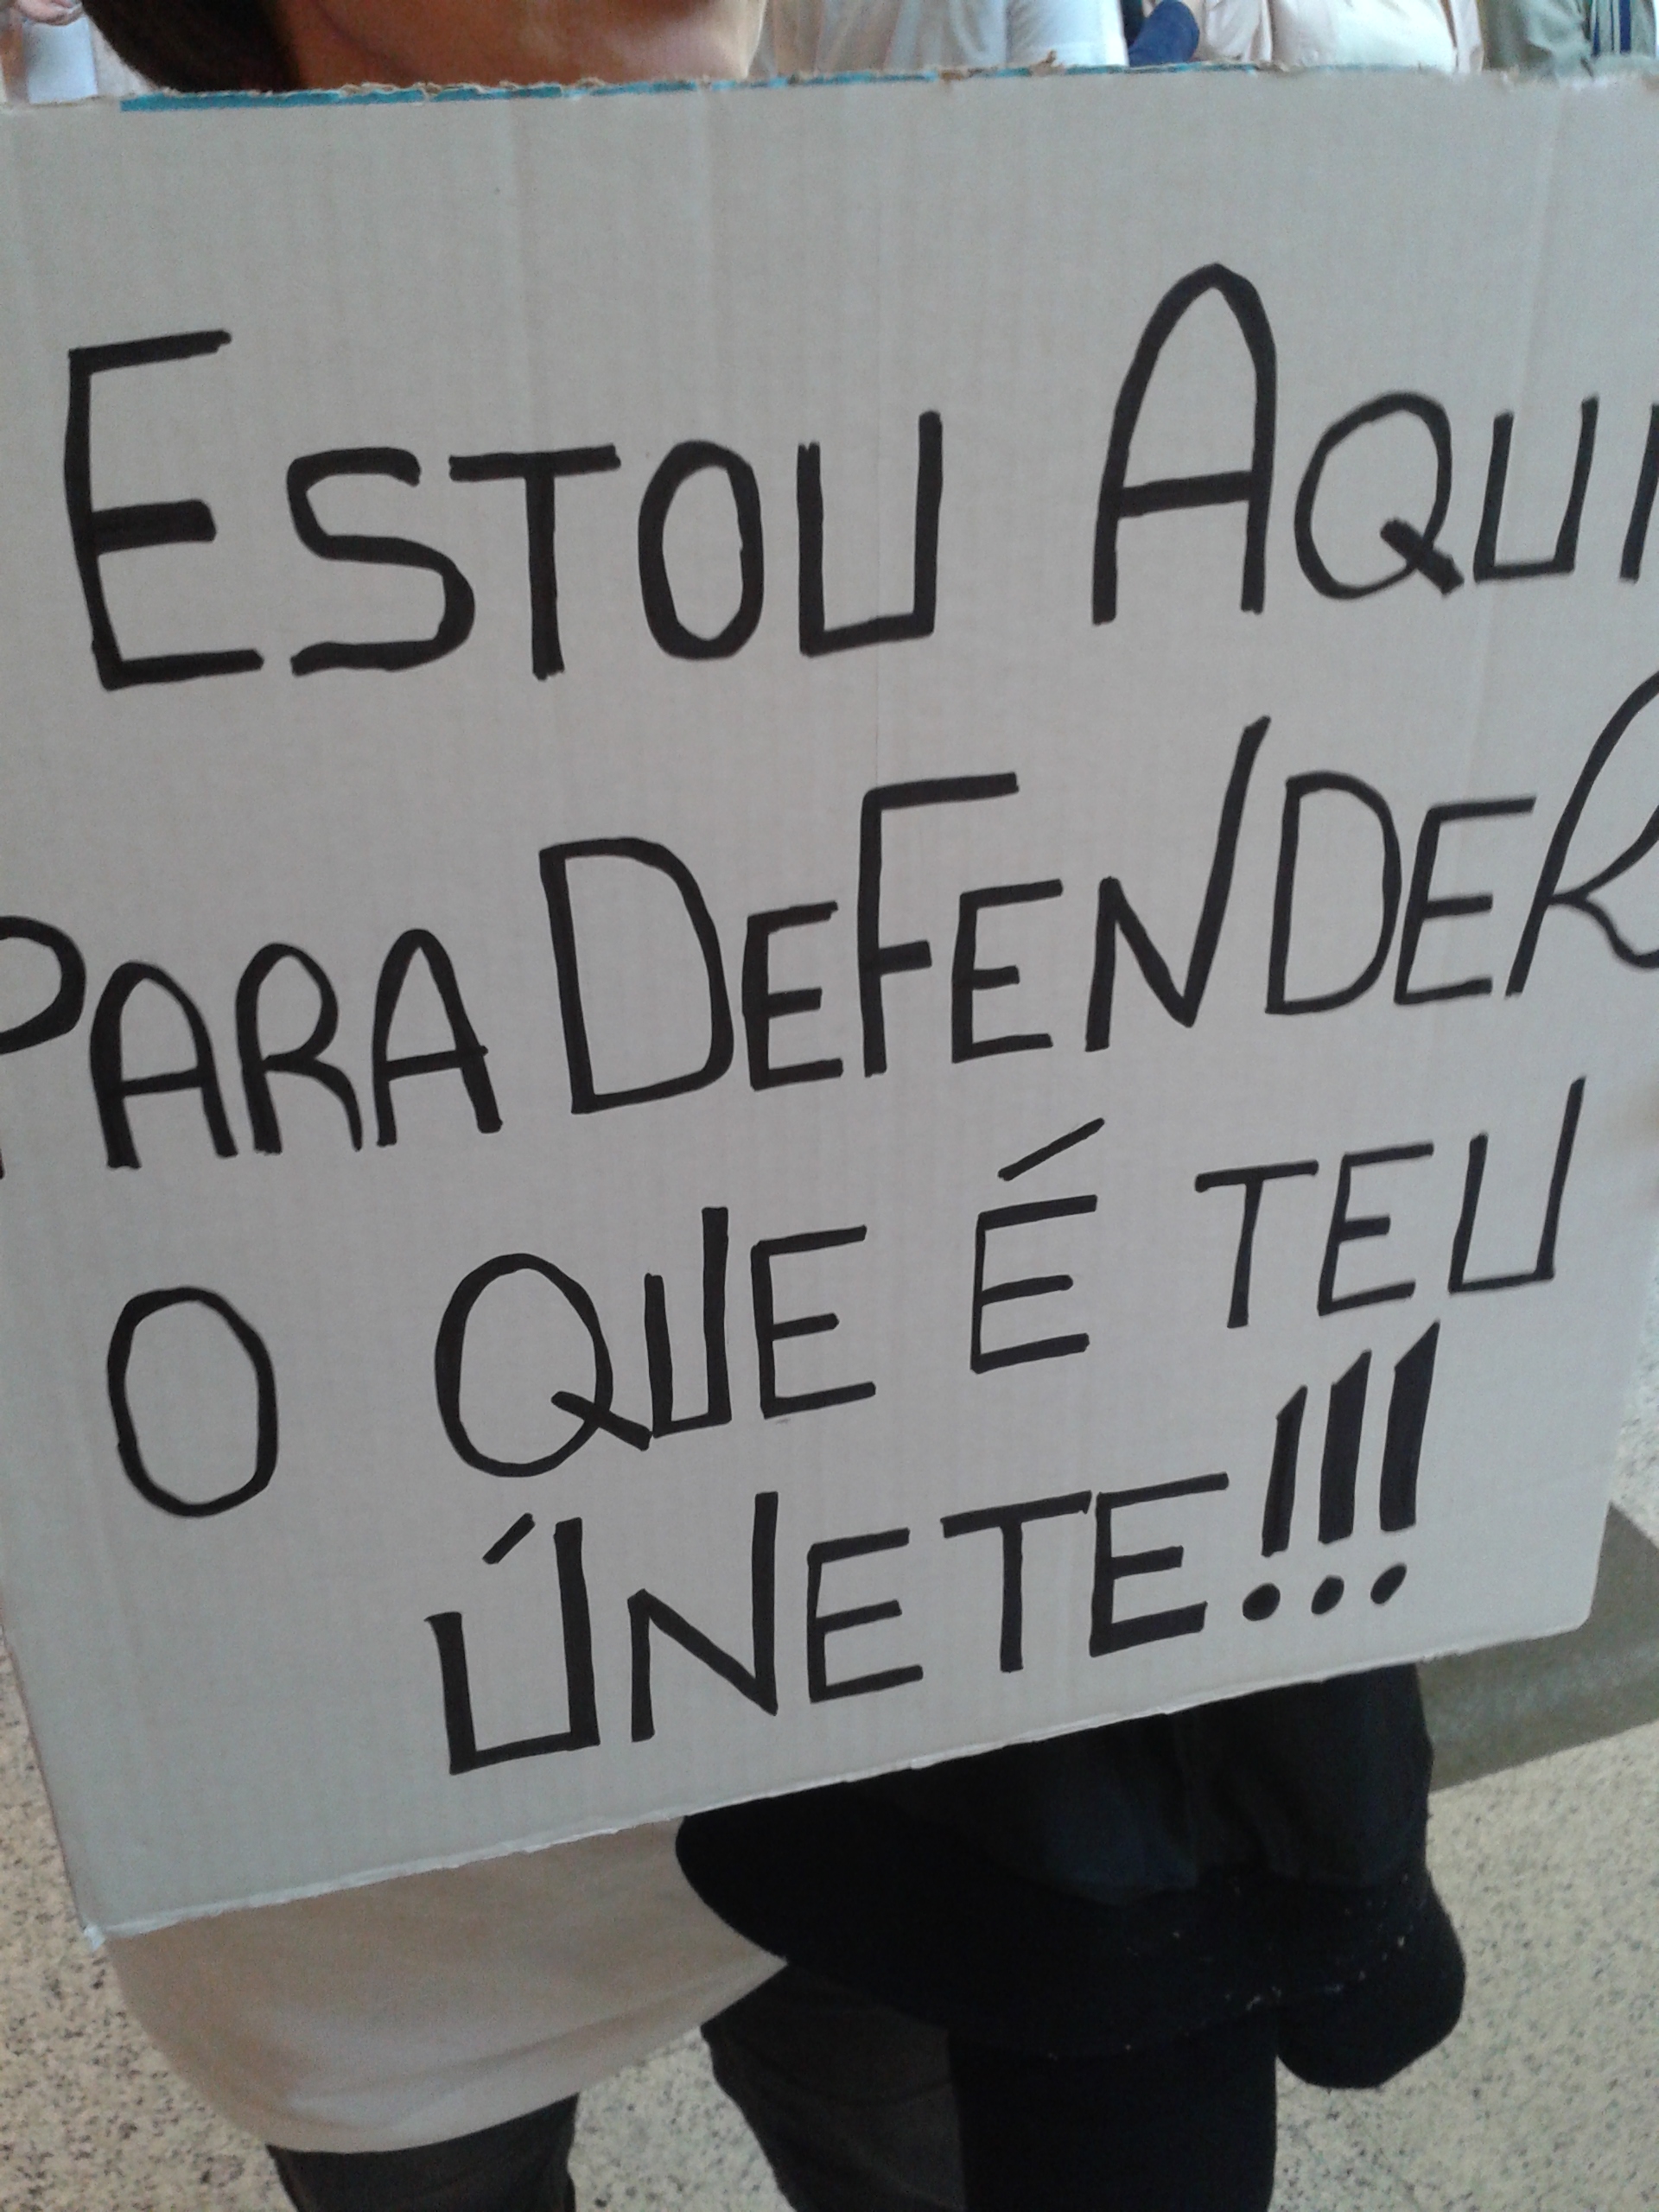 ESTOU AQUI
PARA DEFENDER
O QUE É TEU
ÚNETE!!!